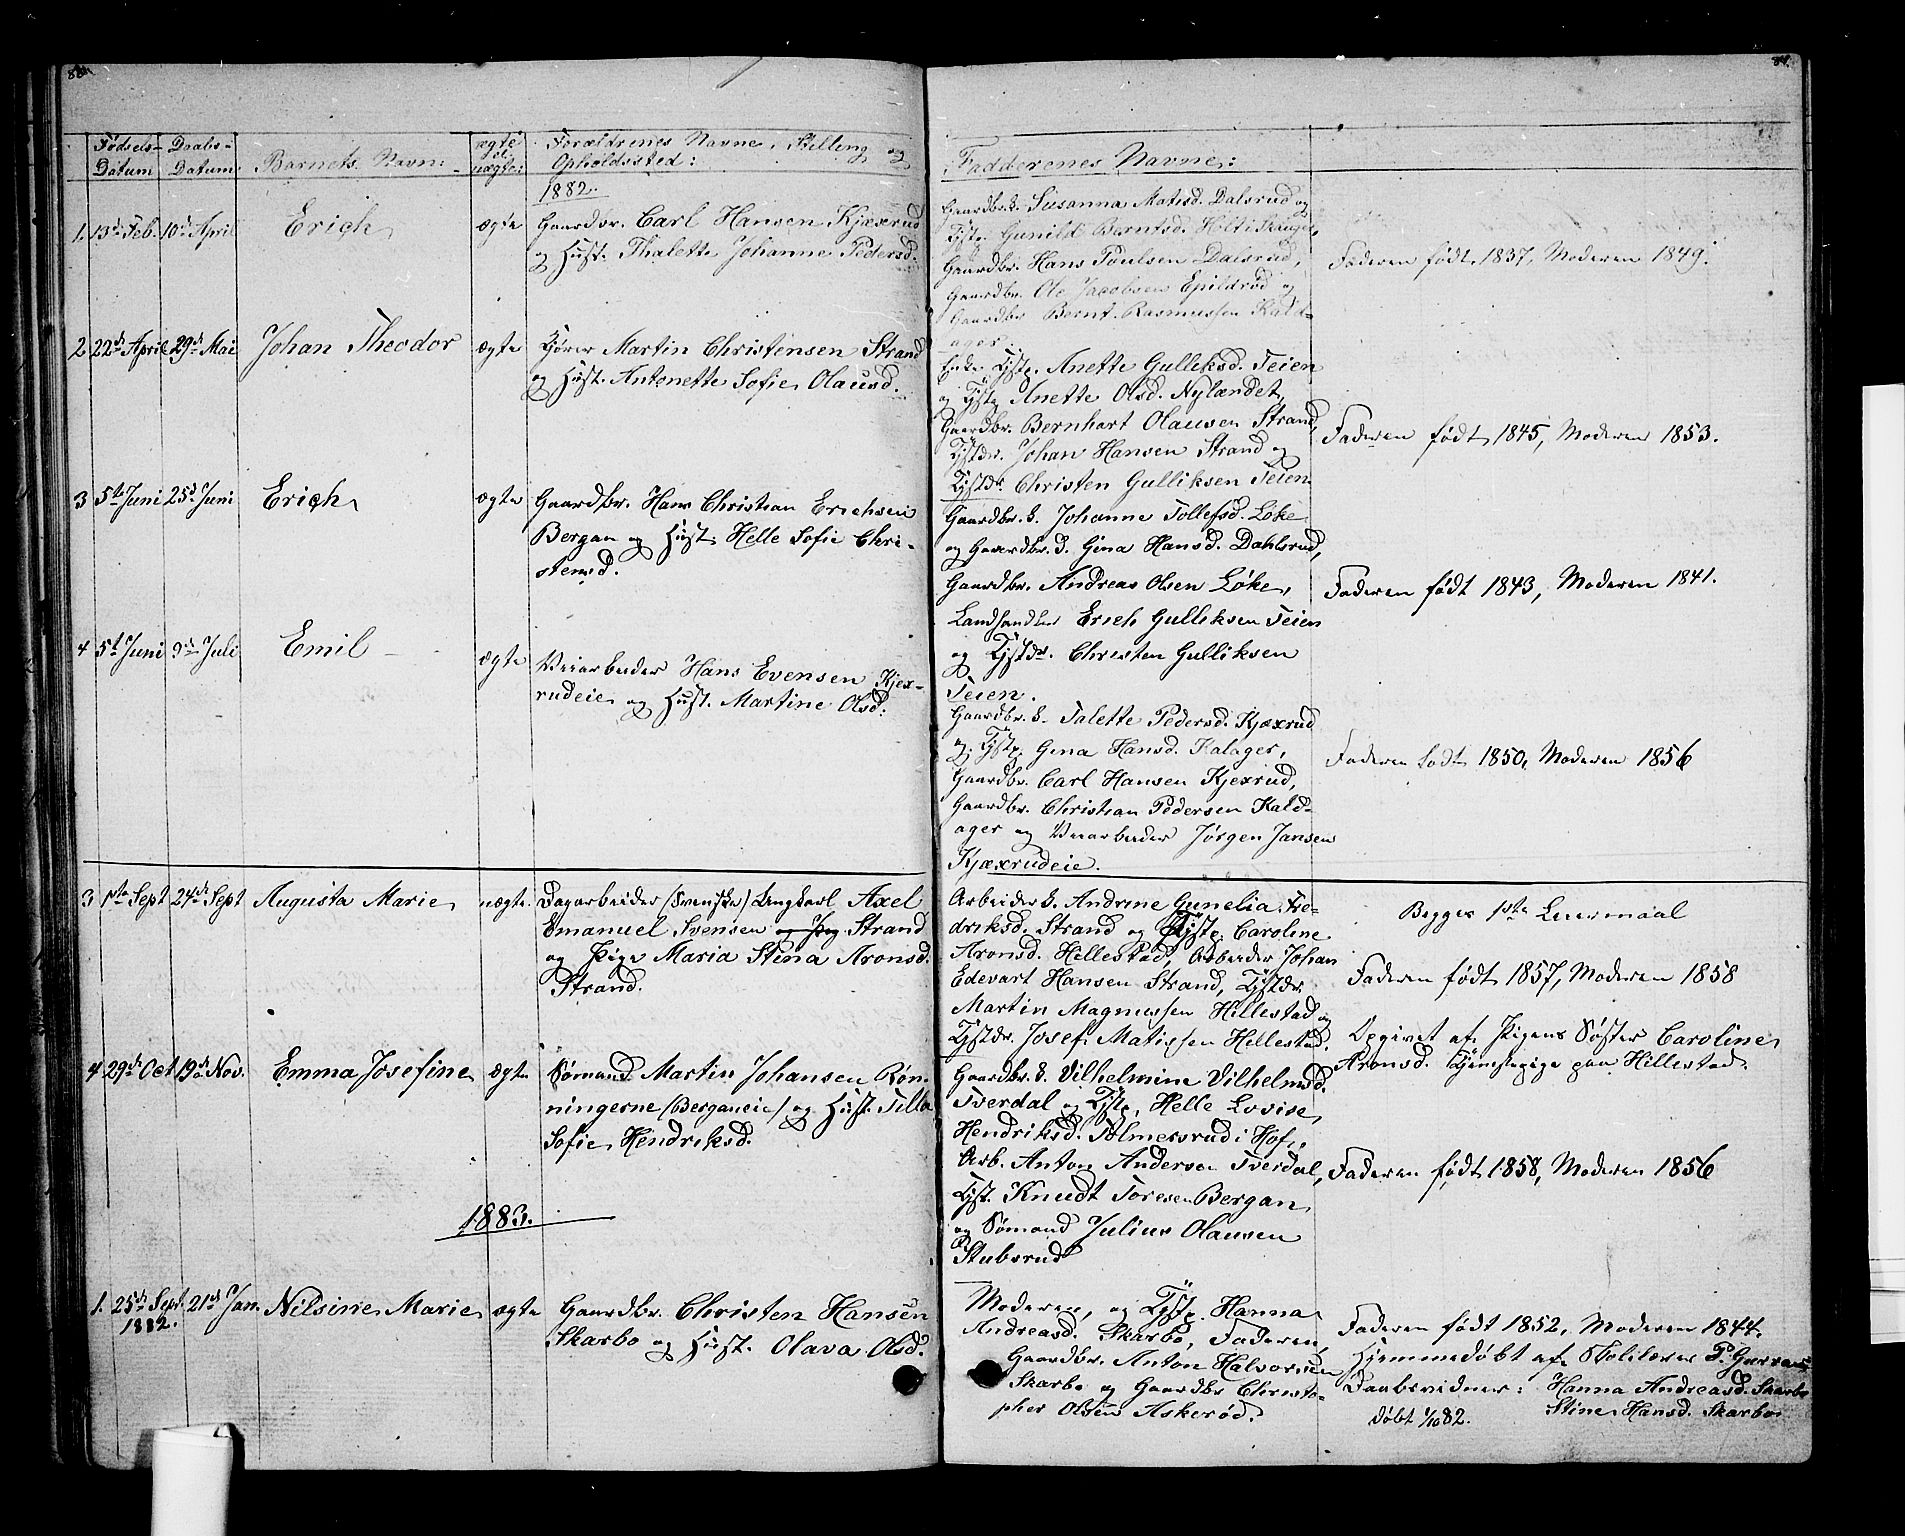 84.
Fødsels- Datum
Daabs- Datum
Barnets Navn:
ægte el uægte:
Forældrenes Navne, Stilling og
Opholdssted:
Fadderenes Navne:
1882.
1. 13de Feb. 10de April Erich ægte Gaardbr. Carl Hansen Kjæxrud
og Hust. Thalette Johanne Pedersd.
Gaardbr.k. Susanna Matisd. Dalsrud og
Tjstp. Gunild Berntsd. Holt i Skauger,
Gaardbr. Hans Poulsen Dalsrud,
Gaardbr. Ole Jacobsen Epildrød og
Gaardbr Bernt Rasmussen Kald-
ager.
Faderen født 1837, Moderen 1849.
2 22de April 29de Mai Johan Theodor ægte Kjører Martin Christensen Strand
og Hust. Antonette Sofie Olausd.
Enke Tjstp. Anette Gulliksd. Teien
og Tjstp Anette Olsd. Nylændet,
Gaardbr. Bernhart Olausen Strand,
Tjstdr. Johan Hansen Strand og
Tjstdr. Christen Gulliksen Teien
Faderen født 1845, Moderen 1853.
3 5te Juni 25de Juni Erich ægte Gaardbr. Hans Christian Erichsen
Bergan og Hust. Helle Sofie Chri-
stensd.
Gaardbr.k. Johanne Tollefsd. Løke
og Gaardbr.d. Gina Hansd. Dahlsrud,
Gaardbr. Andreas Olsen Løke,
Landhandler Erich Gulliksen Teien
og Tjstdr. Christen Gulliksen
Teien.
Faderen født 1843, Moderen 1841.
4 5te Juni 9de Juli Emil ægte Veiarbeider Hans Evensen Kjex-
rudeie og Hust. Martine Olsd:
Gaardbr.k. Talette Pedersd. Kjæxrud
og Tjstp. Gina Hansd. Kalager,
Gaardbr. Carl Hansen Kjexrud,
Gaardbr. Christian Pedersen Kald-
ager og Veiarbeider Jørgen Jansen
Kjæxrudeie.
Faderen født 1850, Moderen 1856
3 1ste Sept 24de Sept Augusta Marie uægte. Dagarbeider (Svenske) Ungkarl Axel
Emanuel Svensen og Pig Strand
og Pige Maria Stina Aronsd.
Strand.
Arbeider k. Andrine Gunelia Fre-
driksd. Strand og Tjstp. Caroline
Aronsd. Hillestad, Arbeider Johan
Edevart Hansen Strand, Tjstdr.
Martin Magnussen Hillestad og
Tjstdr. Josef Matissen Hillestad.
Begges 1ste Leiermaal
Faderen født 1857, Moderen 1858
Opgivet af Pigens Søster Caroline
Aronsd. Tjenstepige paa Hillestad.
4 29de Oct 19de Nov. Emma Josefine ægte Sømand Martin Johansen Røn-
ningerne (Berganeie) og Hust. Tilla
Sofie Hendriksd.
Gaardbr.k. Vilhelmine Vilhelmsd.
Tverdal og Tjstp. Helle Lovise
Hendriksd. Tolmersrud i Hof,
Arb. Anton Andersen Tverdal,
Tjst. Knudt Toresen Bergan
og Sømand Julius Olausen
Stubsrud
Faderen født 1858, Moderen 1856
1883.
1. 25de Sept. 1882. 21de Jan. Nilsine Marie ægte Gaardbr. Christen Hansen
Skarbo og Hust. Olava Olsd.
Moderen, og Tjstp. Hanna
Andreasd. Skarbo, Faderen,
Gaardbr. Anton Halvorsen
Skarbo og Gaardbr Christo-
pher Olsen Askerød.
Faderen født 1852, Moderen 1844.
Hjemmedøbt af Skolelærer P.
Daabsvidner: Hanna Andreasd. Skarbo
døbt 1/10 82. Stine Hansd. Skarbo